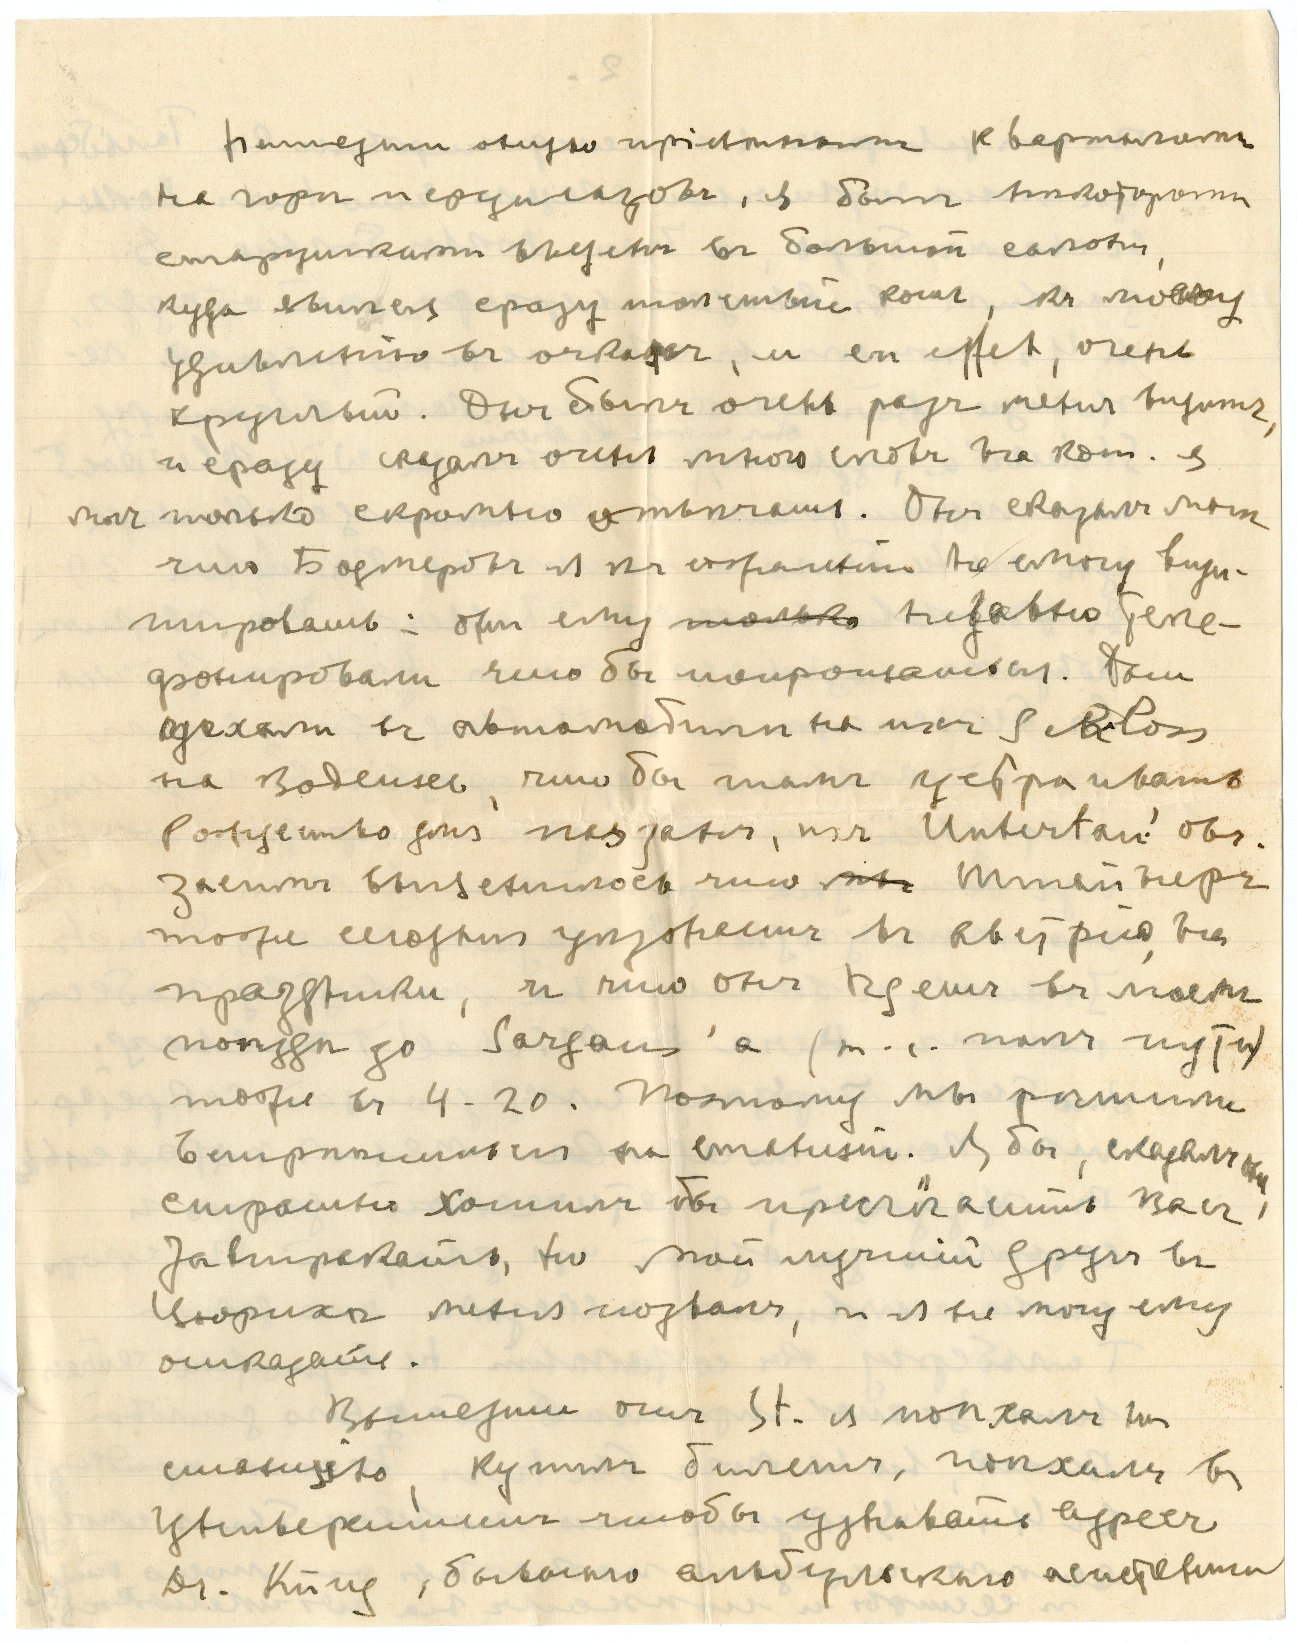 Нашедши оную пріятнымъ квартиламъ
на горѣ , я былъ нѣкоторыми
старушками введенъ въ большой салонъ,
куда явился сразу толстый котъ, къ моему
удивленію въ очкахъ, и en effet, очень
круглый. Онъ былъ очень радъ меня видѣть,
и сразу сказалъ очень много словъ на кот. я
могъ только скромно отвѣчать. Онъ сказалъ мнѣ
что Бодмеровъ я къ сожалѣнію не смогу визи-
тировать: они ему только недавно теле-
фонировали что бы попрощаться. Они
уехали въ автомобилѣ на ихъ Schloss
на Bodensee, что бы тамъ устраивать
Рождество для поздан, ихъ Untertan'овъ.
Засимъ выяснилось что мы Штейнеръ
тоже сегодня уѣзжаетъ въ Австрію, на
праздники, и что онъ ѣдетъ въ моемъ
поѣздѣ до Sargans'а (т.е. полъ пути)
тоже въ 4-20. Поэтому мы рѣшили
встрѣтиться на станціи. Я бы, сказалъ онъ,
страшно хотѣлъ бы пригласить Васъ
завтракать, но мой лучшій другъ въ
Цюрихѣ меня позвалъ, и я не могу ему
отказать.
Вышедши отъ St. я поѣхалъ на
станцію, купилъ билетъ, поѣхалъ въ
Университетъ чтобы узнавать адресъ
Dr. Küng, бывшаго ассистента